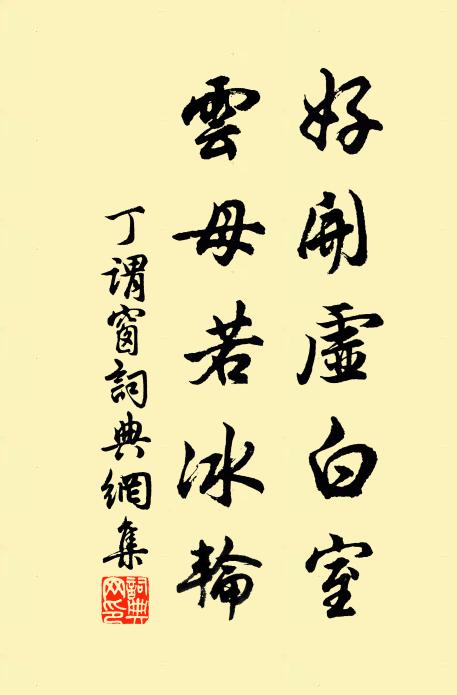 好開虛白室
雲母若冰輪
丁謂窗詞典網集
詞典網印